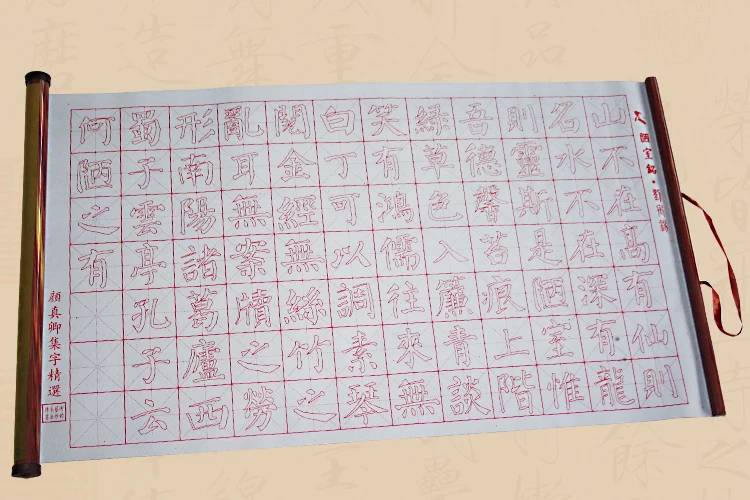 陋室銘·劉禹錫
山不在高有仙則
名水不在深有龍
則靈斯是陋室惟
吾德馨苔痕上階
綠草色入簾青談
笑有鴻儒往來無
白丁可以調素琴
閱金經無絲竹之
亂耳無案牘之勞
形南陽諸葛廬西
蜀子雲亭孔子云
何陋之有
顔真卿集字精選